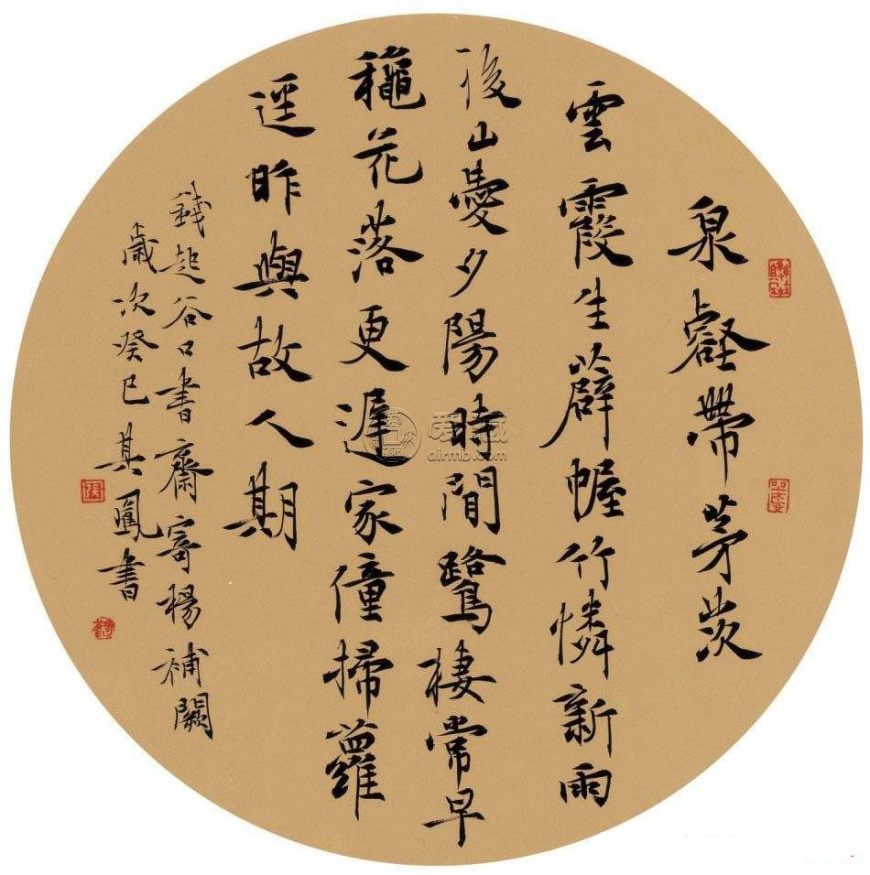 泉壑帶茅茨
雲霞生薜幄竹憐新雨
後山愛夕陽時閒鷺棲常早
穐花落更遲家僮掃蘿
逕昨與故人期
錢起谷口書齋寄楊補闕
歲次癸巳其鳳書
airmb.com